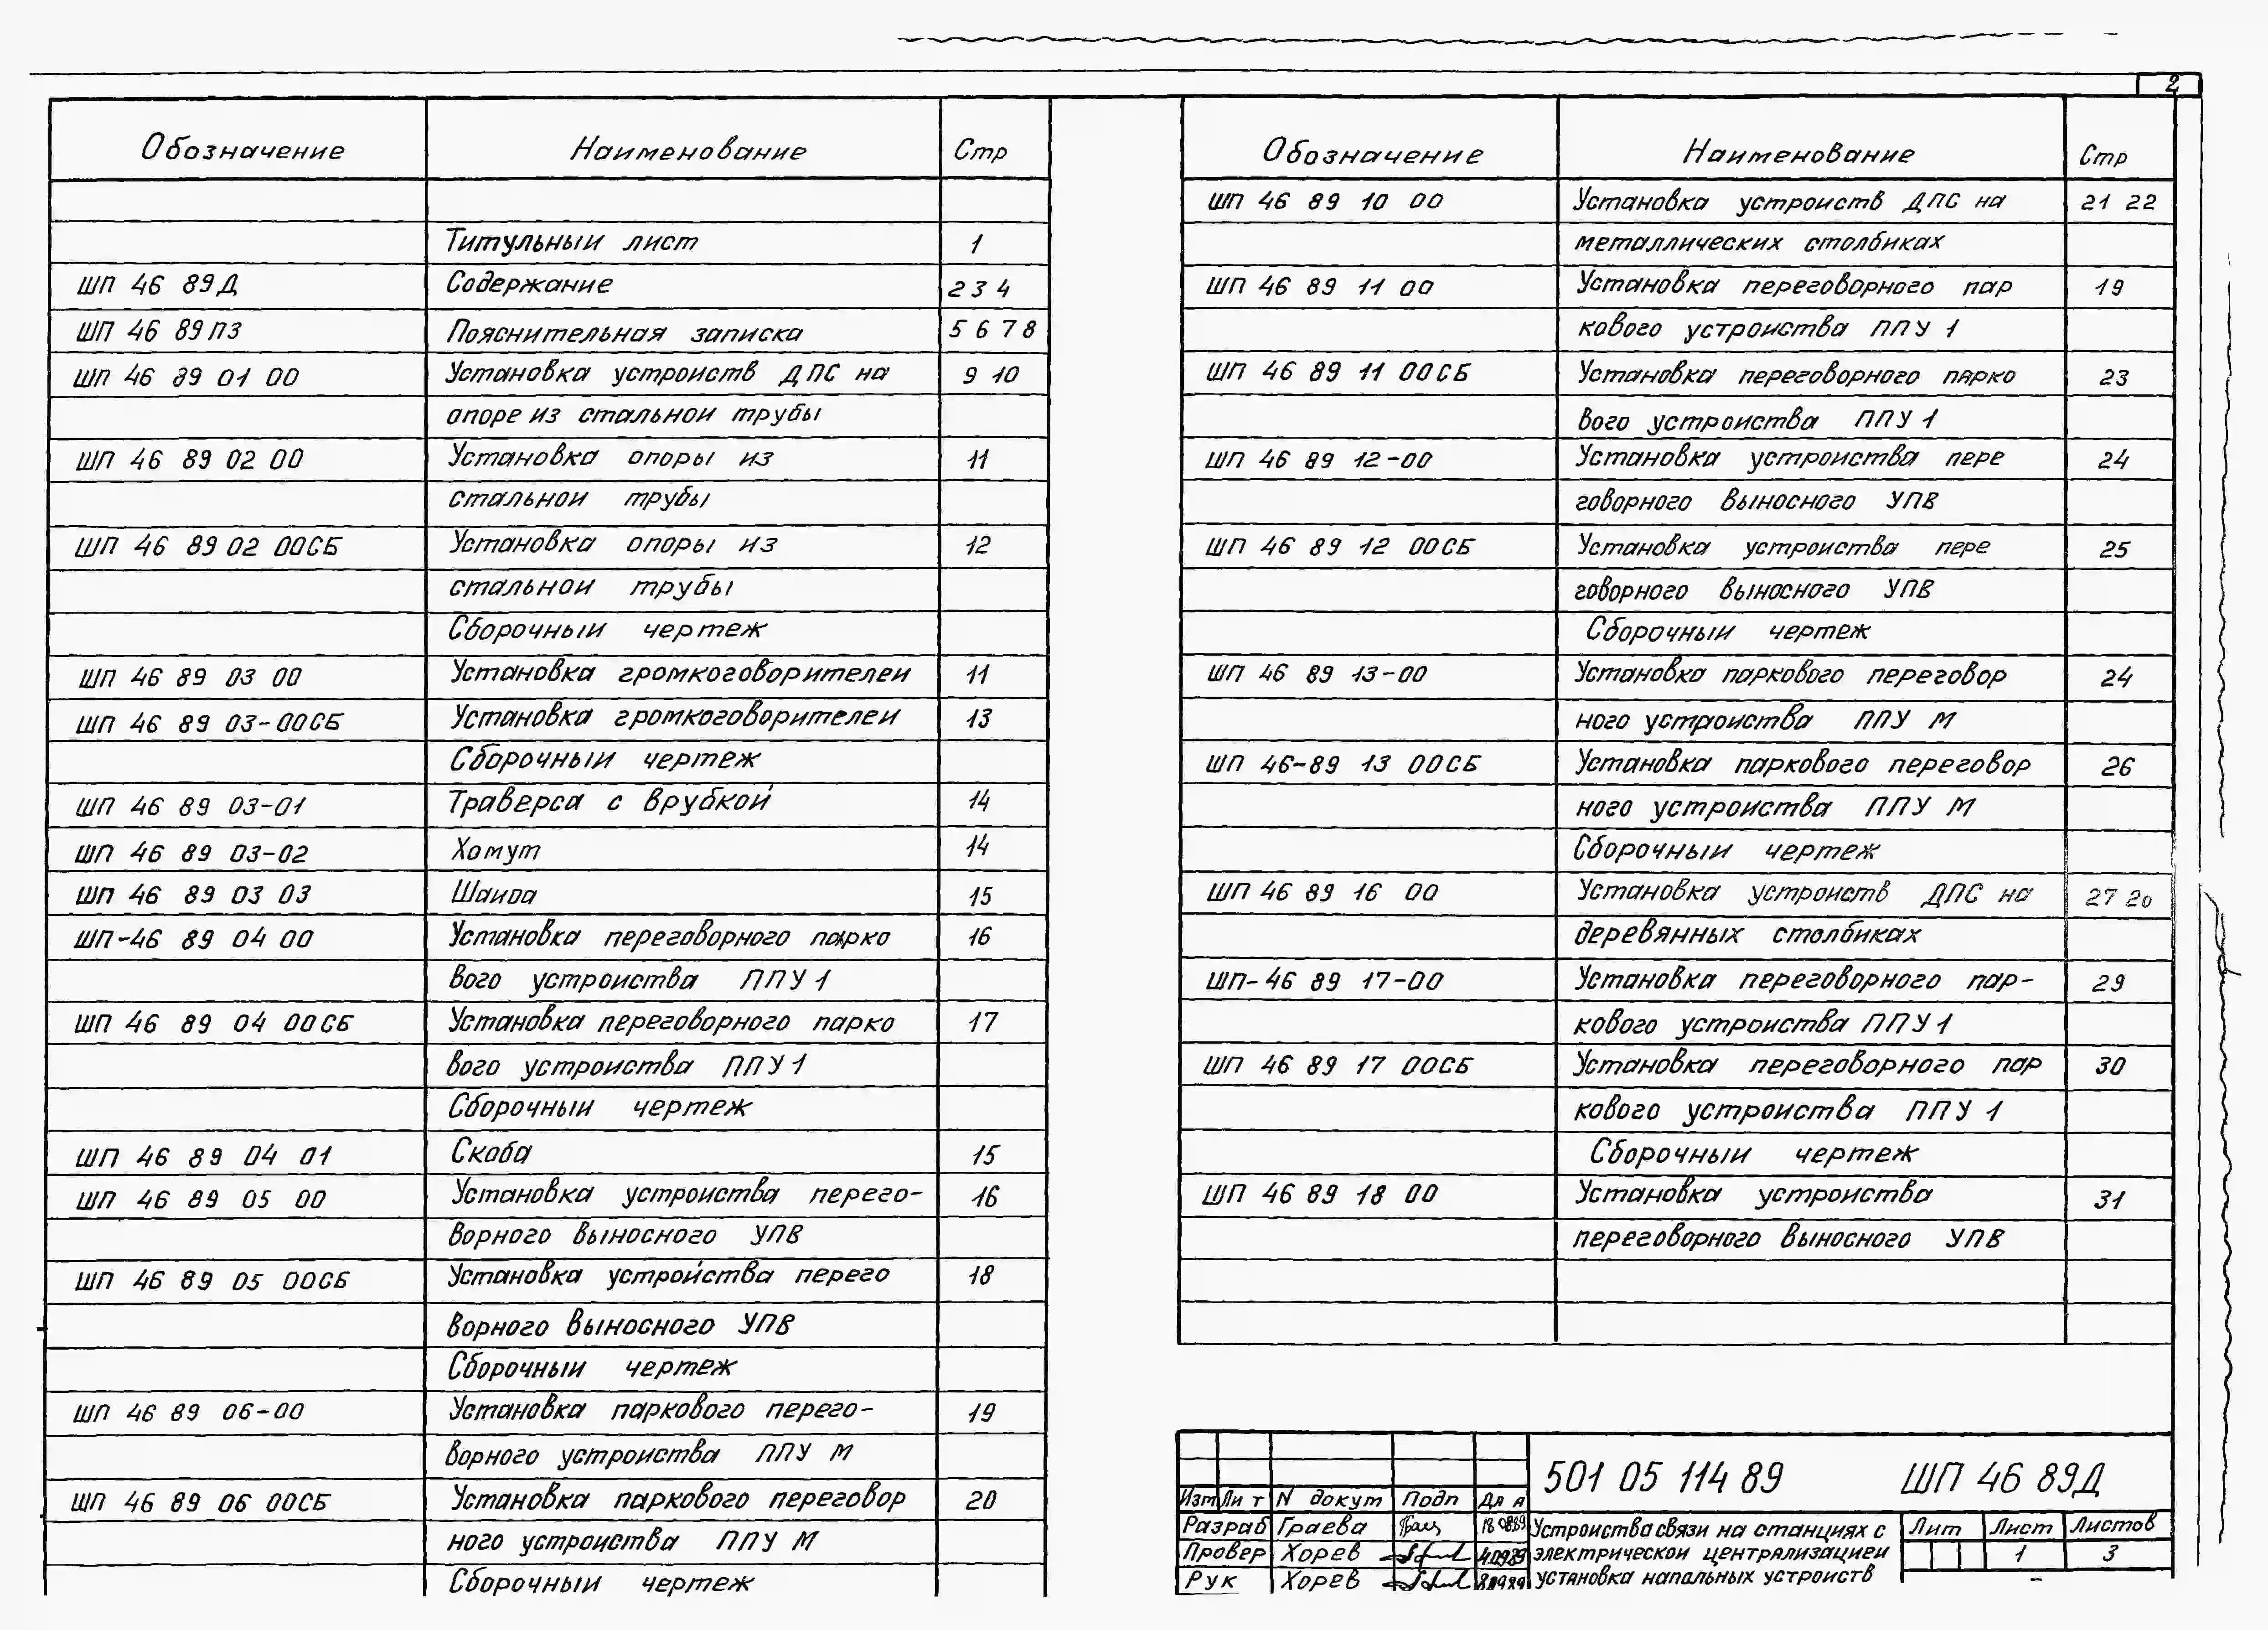 2
Обозначение Наименование Стр
Титульныи лист 1
ШП 46 89Д Содержание 2 3 4
ШП 46 89ПЗ Пояснительная записка 5 6 7 8
ШП 46 89 01 00 Установка устроиств ДПС на 9 10
опоре из стальнои трубы
ШП 46 89 02 00 Установка опоры из 11
стальнои трубы
ШП 46 89 02 00СБ Установка опоры из 12
стальнои трубы
Сборочныи чертеж
ШП 46 89 03 00 Установка громкоговорителеи 11
ШП 46 89 03-00СБ Установка громкоговорителеи 13
Сборочныи чертеж
ШП 46 89 03-01 Траверса с врубкой 14
ШП 46 89 03-02 Хомут 14
ШП 46 89 03 03 Шаиба 15
ШП-46 89 04 00 Установка переговорного парко 16
вого устроиства ППУ 1
ШП 46 89 04 00СБ Установка переговорного парко 17
вого устроиства ППУ 1
Сборочныи чертеж
ШП 46 89 04 01 Скоба 15
ШП 46 89 05 00 Установка устроиства перего- 16
ворного выносного УПВ
ШП 46 89 05 00СБ Установка устройства перего 18
ворного выносного УПВ
Сборочныи чертеж
ШП 46 89 06-00 Установка паркового перего- 19
ворного устроиства ППУ М
ШП 46 89 06 00СБ Установка паркового переговор 20
ного устроиства ППУ М
Сборочныи чертеж
Обозначение Наименование Стр
ШП 46 89 10 00 Установка устроиств ДПС на 21 22
металлических столбиках
ШП 46 89 11 00 Установка переговорного пар 19
кового устроиства ППУ 1
ШП 46 89 11 00СБ Установка переговорного парко 23
вого устроиства ППУ 1
ШП 46 89 12-00 Установка устроиства пере 24
говорного выносного УПВ
ШП 46 89 12 00СБ Установка устроиства пере 25
говорного выносного УПВ
Сборочныи чертеж
ШП 46 89 13-00 Установка паркового переговор 24
ного устроиства ППУ М
ШП 46-89 13 00СБ Установка паркового переговор 26
ного устроиства ППУ М
Сборочныи чертеж
ШП 46 89 16 00 Установка устроиств ДПС на 27
деревянных столбиках
ШП-46 89 17-00 Установка переговорного пар- 29
кового устроиства ППУ 1
ШП 46 89 17 00СБ Установка переговорного пар 30
кового устроиства ППУ 1
Сборочныи чертеж
ШП 46 89 18 00 Установка устроиства 31
переговорного выносного УПВ
501 05 114 89 ШП 46 89Д
Изм Ли т N докум Подп
Разраб Граева
Провер Хорев
Рук Хорев
Устроиства связи на станциях с
электрическои централизациеи
установка напольных устроиств
Лит Лист Листов
1 3